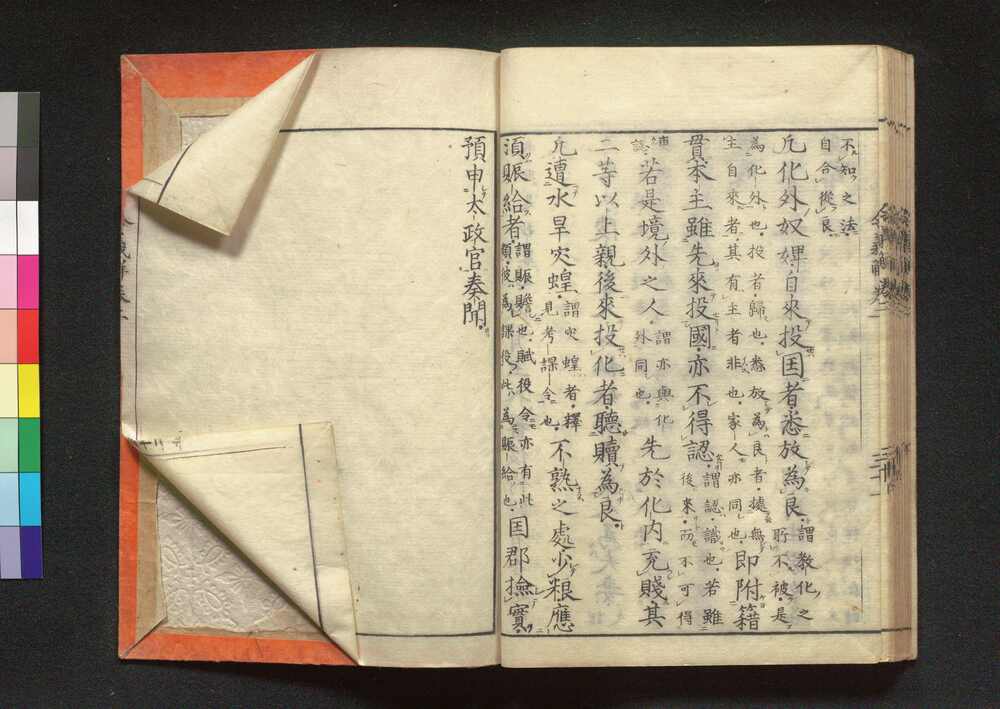 不知之法
自合從良
凡化外奴婢自來投国者悉放為良。謂教化之
所不被是
為化外也。投者歸也。悉放為良者。據無
主自來者。其有主者非也。家人亦同也。即附籍
貫本主雖先來投國亦不得認。謂認識也。若雖
後來。而不可得
若是境外之人謂亦與化
外同也。先於化内充賤其
二等以上親後來投化者聽贖為良。
凡遭水旱灾蝗謂灾蝗者。釋
見考課令也不熟之處少粮應
須賑給者謂賑贍也。賦役令亦有此
類。彼為課役。此為賑給也。国郡撿實
預申太政官奏聞。